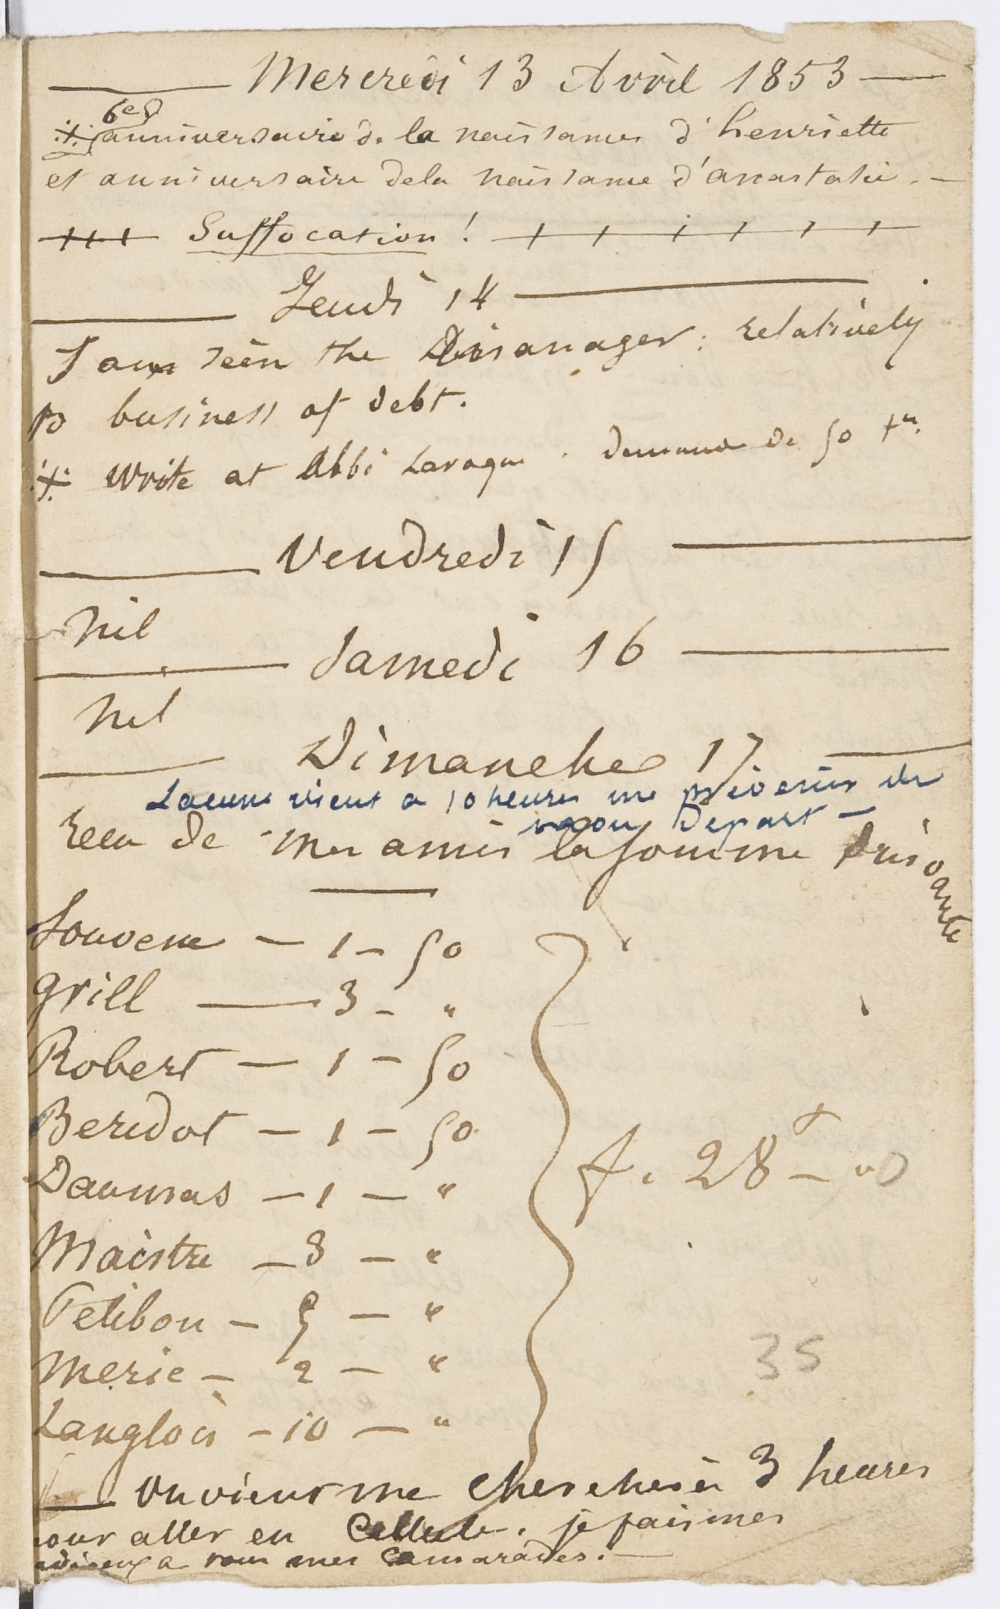 Mercredi 13 Avril 1853
6e
anniversaire de la naissance d'henriette
et anniversaire de la naissance d'anastasie.
+++ Suffocation ! + + + + + +
Jeudi 14
I am seen the manager; relatively
to business of debt.
Write at Abbé Laroque. demande de 50 frs.
Vendredi 15
Nil
Samedi 16
Nil
Dimanche 17
vient a 10 heures me prévenir de
mon Depart —
recu de mes amis la somme suivante
Souvene — 1 — 50
Grill — 3 — "
Robert — 1 — 50
Beredot — 1 — 50
Daumas — 1 — "
Maistre — 3 — "
Petibon — 5 — "
Merie — 2 — "
Langlois — 10 — "
f. 28 — "0
35
On vient me chercher à 3 heures
pour aller en Cellule. je fais mes
adieux a tous mes Camarades. —